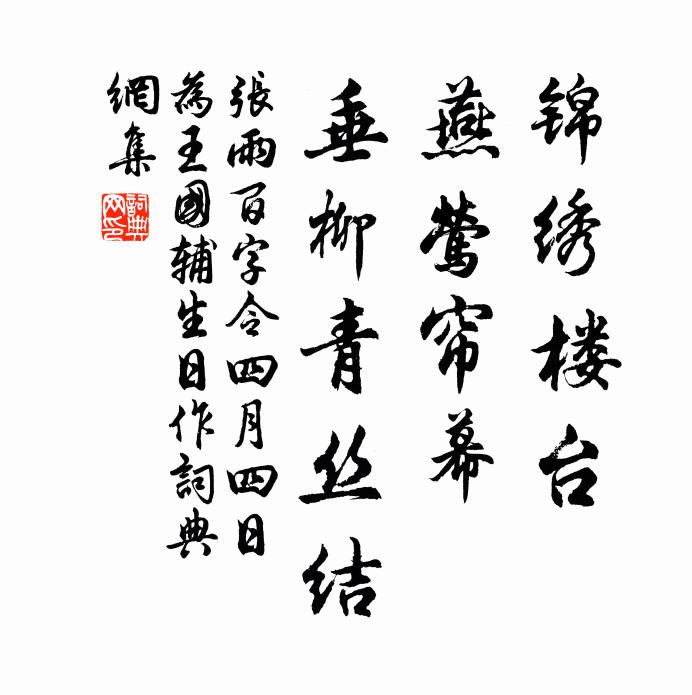 锦绣楼台
燕莺帘幕
垂柳青丝结
張雨百字令四月四日
為王國辅生日作詞典
網集
詞典
网印